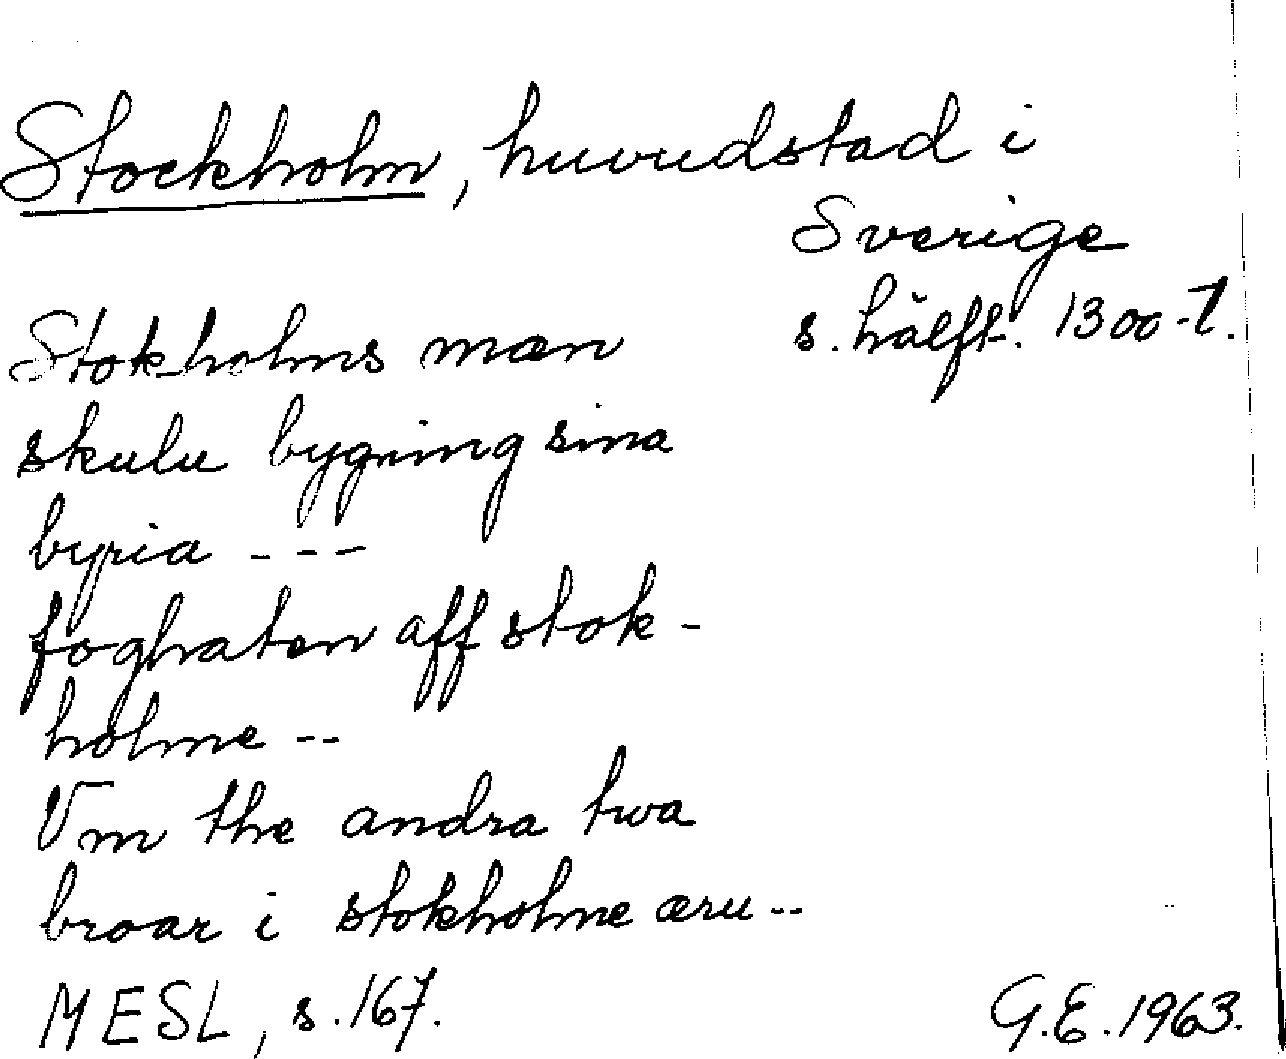 Stockholm, huvudstad i
Sverige
s. hälft. 1300-t.
Stokholms mæn
skulu bygning sina
byria ---
foghaten aff stok-
holme --
Vm the andra twa
broar i stokholme æru --
MESL, s. 167.
G.E. 1963.